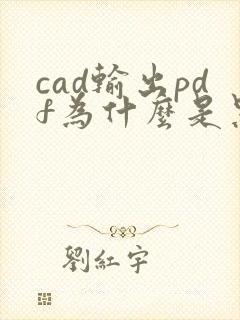 cad輸出pd
f為什麼是
劉紅宇